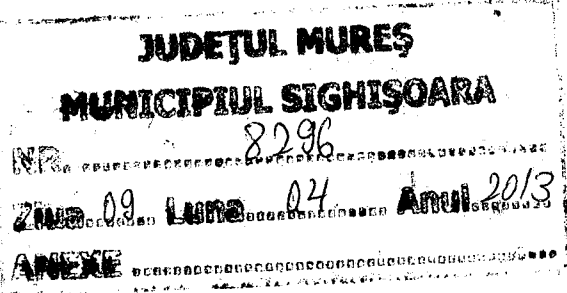 JUDEŢUL MUREŞ
MUNICIPIUL SIGHIŞOARA
NR. 8296
Ziua 09 Luna 04 Anul 2013
ANEXE